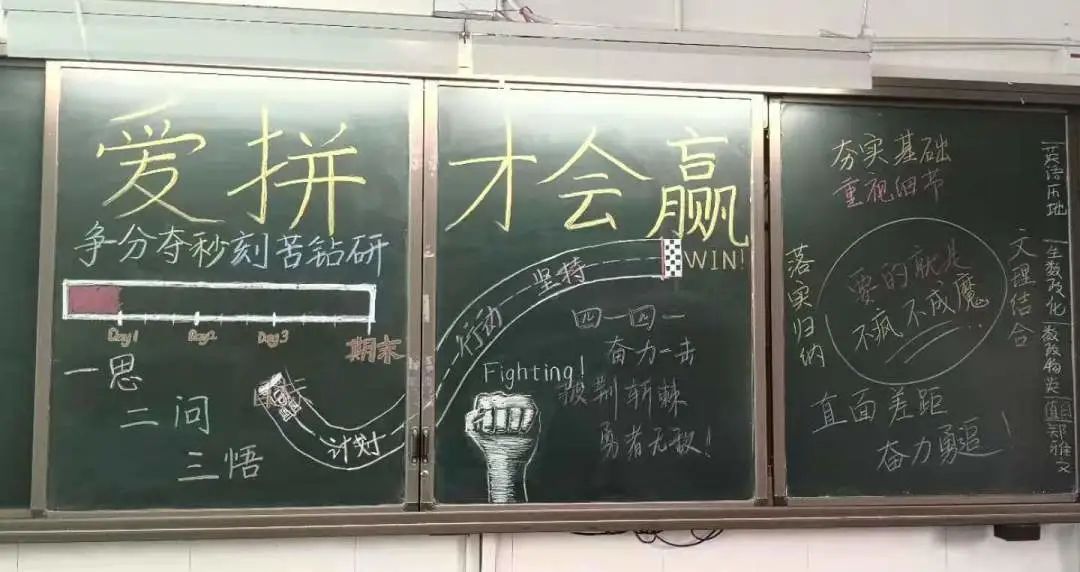 爱拼
争分夺秒刻苦钻研
Day1 Day2 Day3 期末
一思
二问
三悟
目标
计划
行动
坚持
才会赢
WIN!
四一四一
奋力一击
披荆斩棘
勇者无敌!
Fighting!
夯实基础
重视细节
落实归纳
要的就是
不疯不成魔
文理结合
直面差距
奋力勇追!
英语历地
生数政化
数政物英
值日
郑雅文